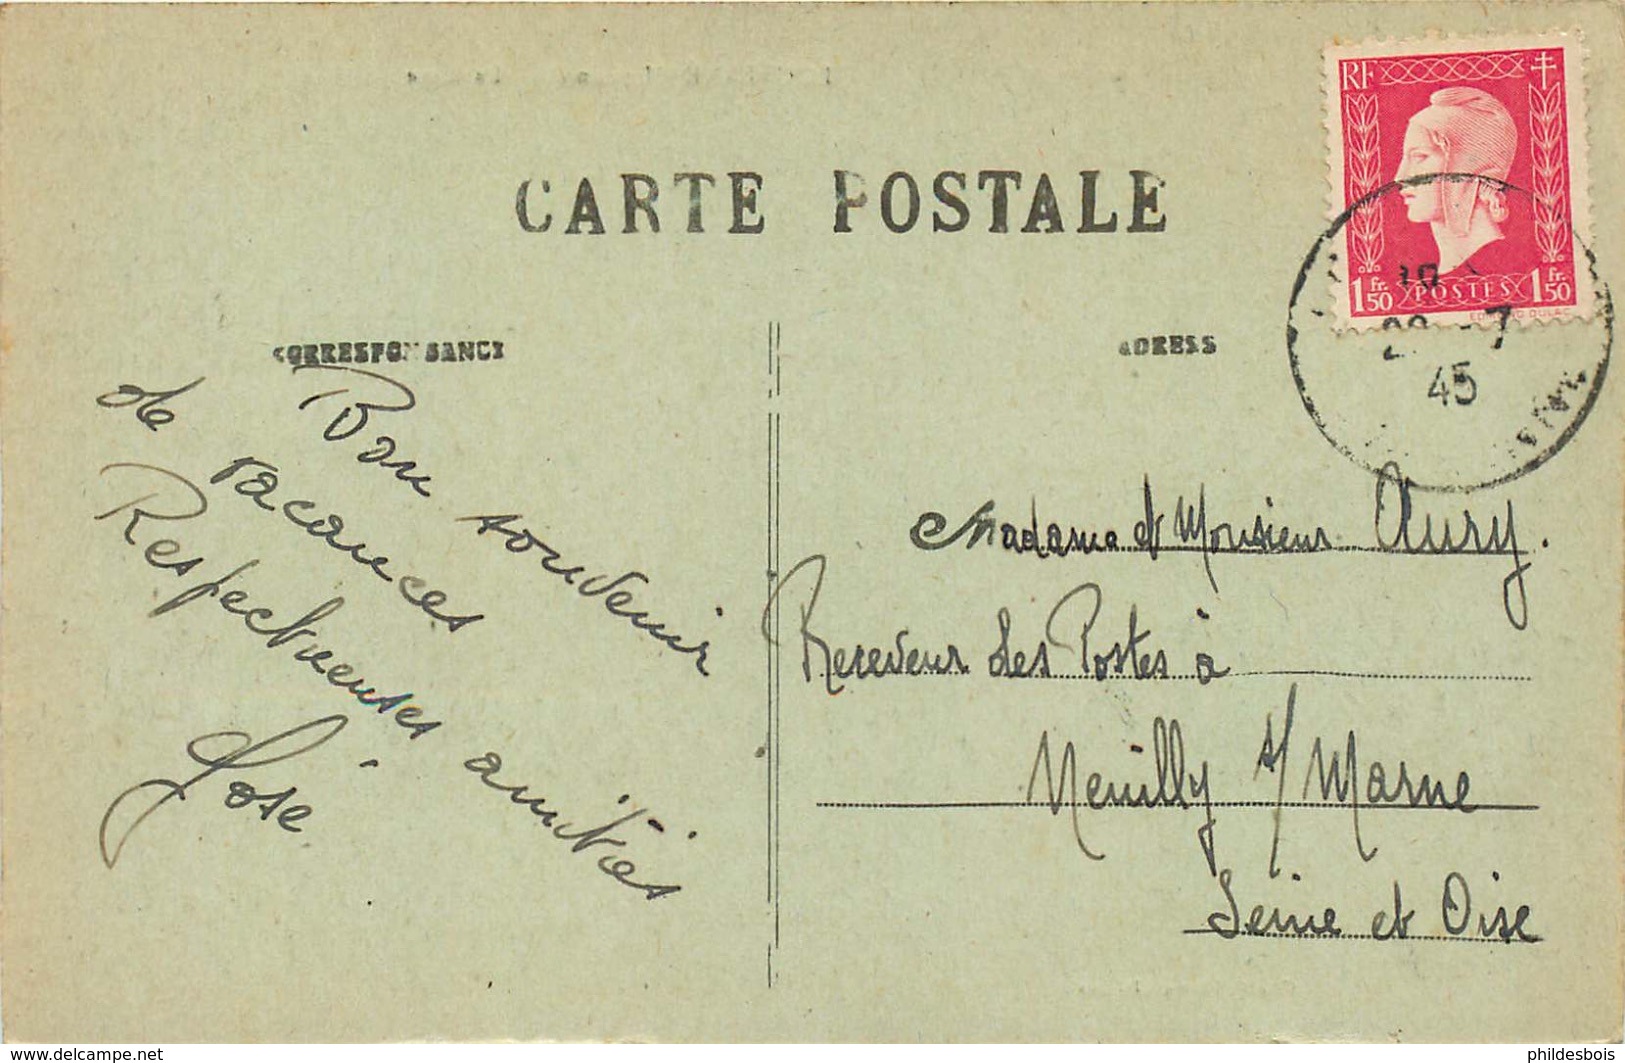 CARTE POSTALE
RF
1 Fr. 50 POSTES 1 Fr. 50
7
45
CORRESPONDANCE
ADRESS
Bon souvenir
de vacances
Respectueuses amitiés
José
Madame et Monsieur Aury.
Receveur des Postes à
Neuilly s/ Marne
Seine et Oise
www.delcampe.net
phildesbois